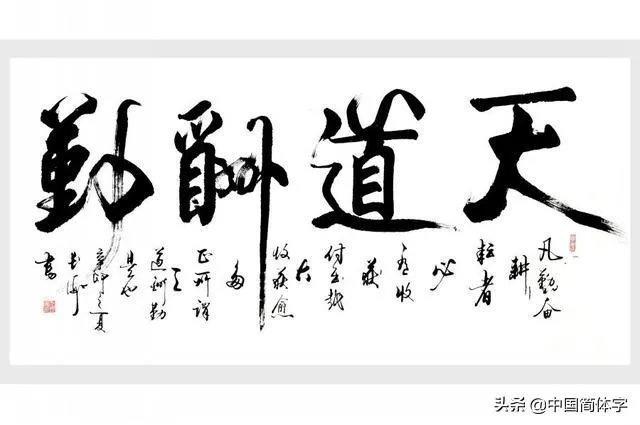 天道酬勤
凡勤奋
耕
耘者
必
有收
获
付出越
大
收获愈
多
正所谓
天
道酬勤
是也
辛卯之夏
书
头条 @中国简体字